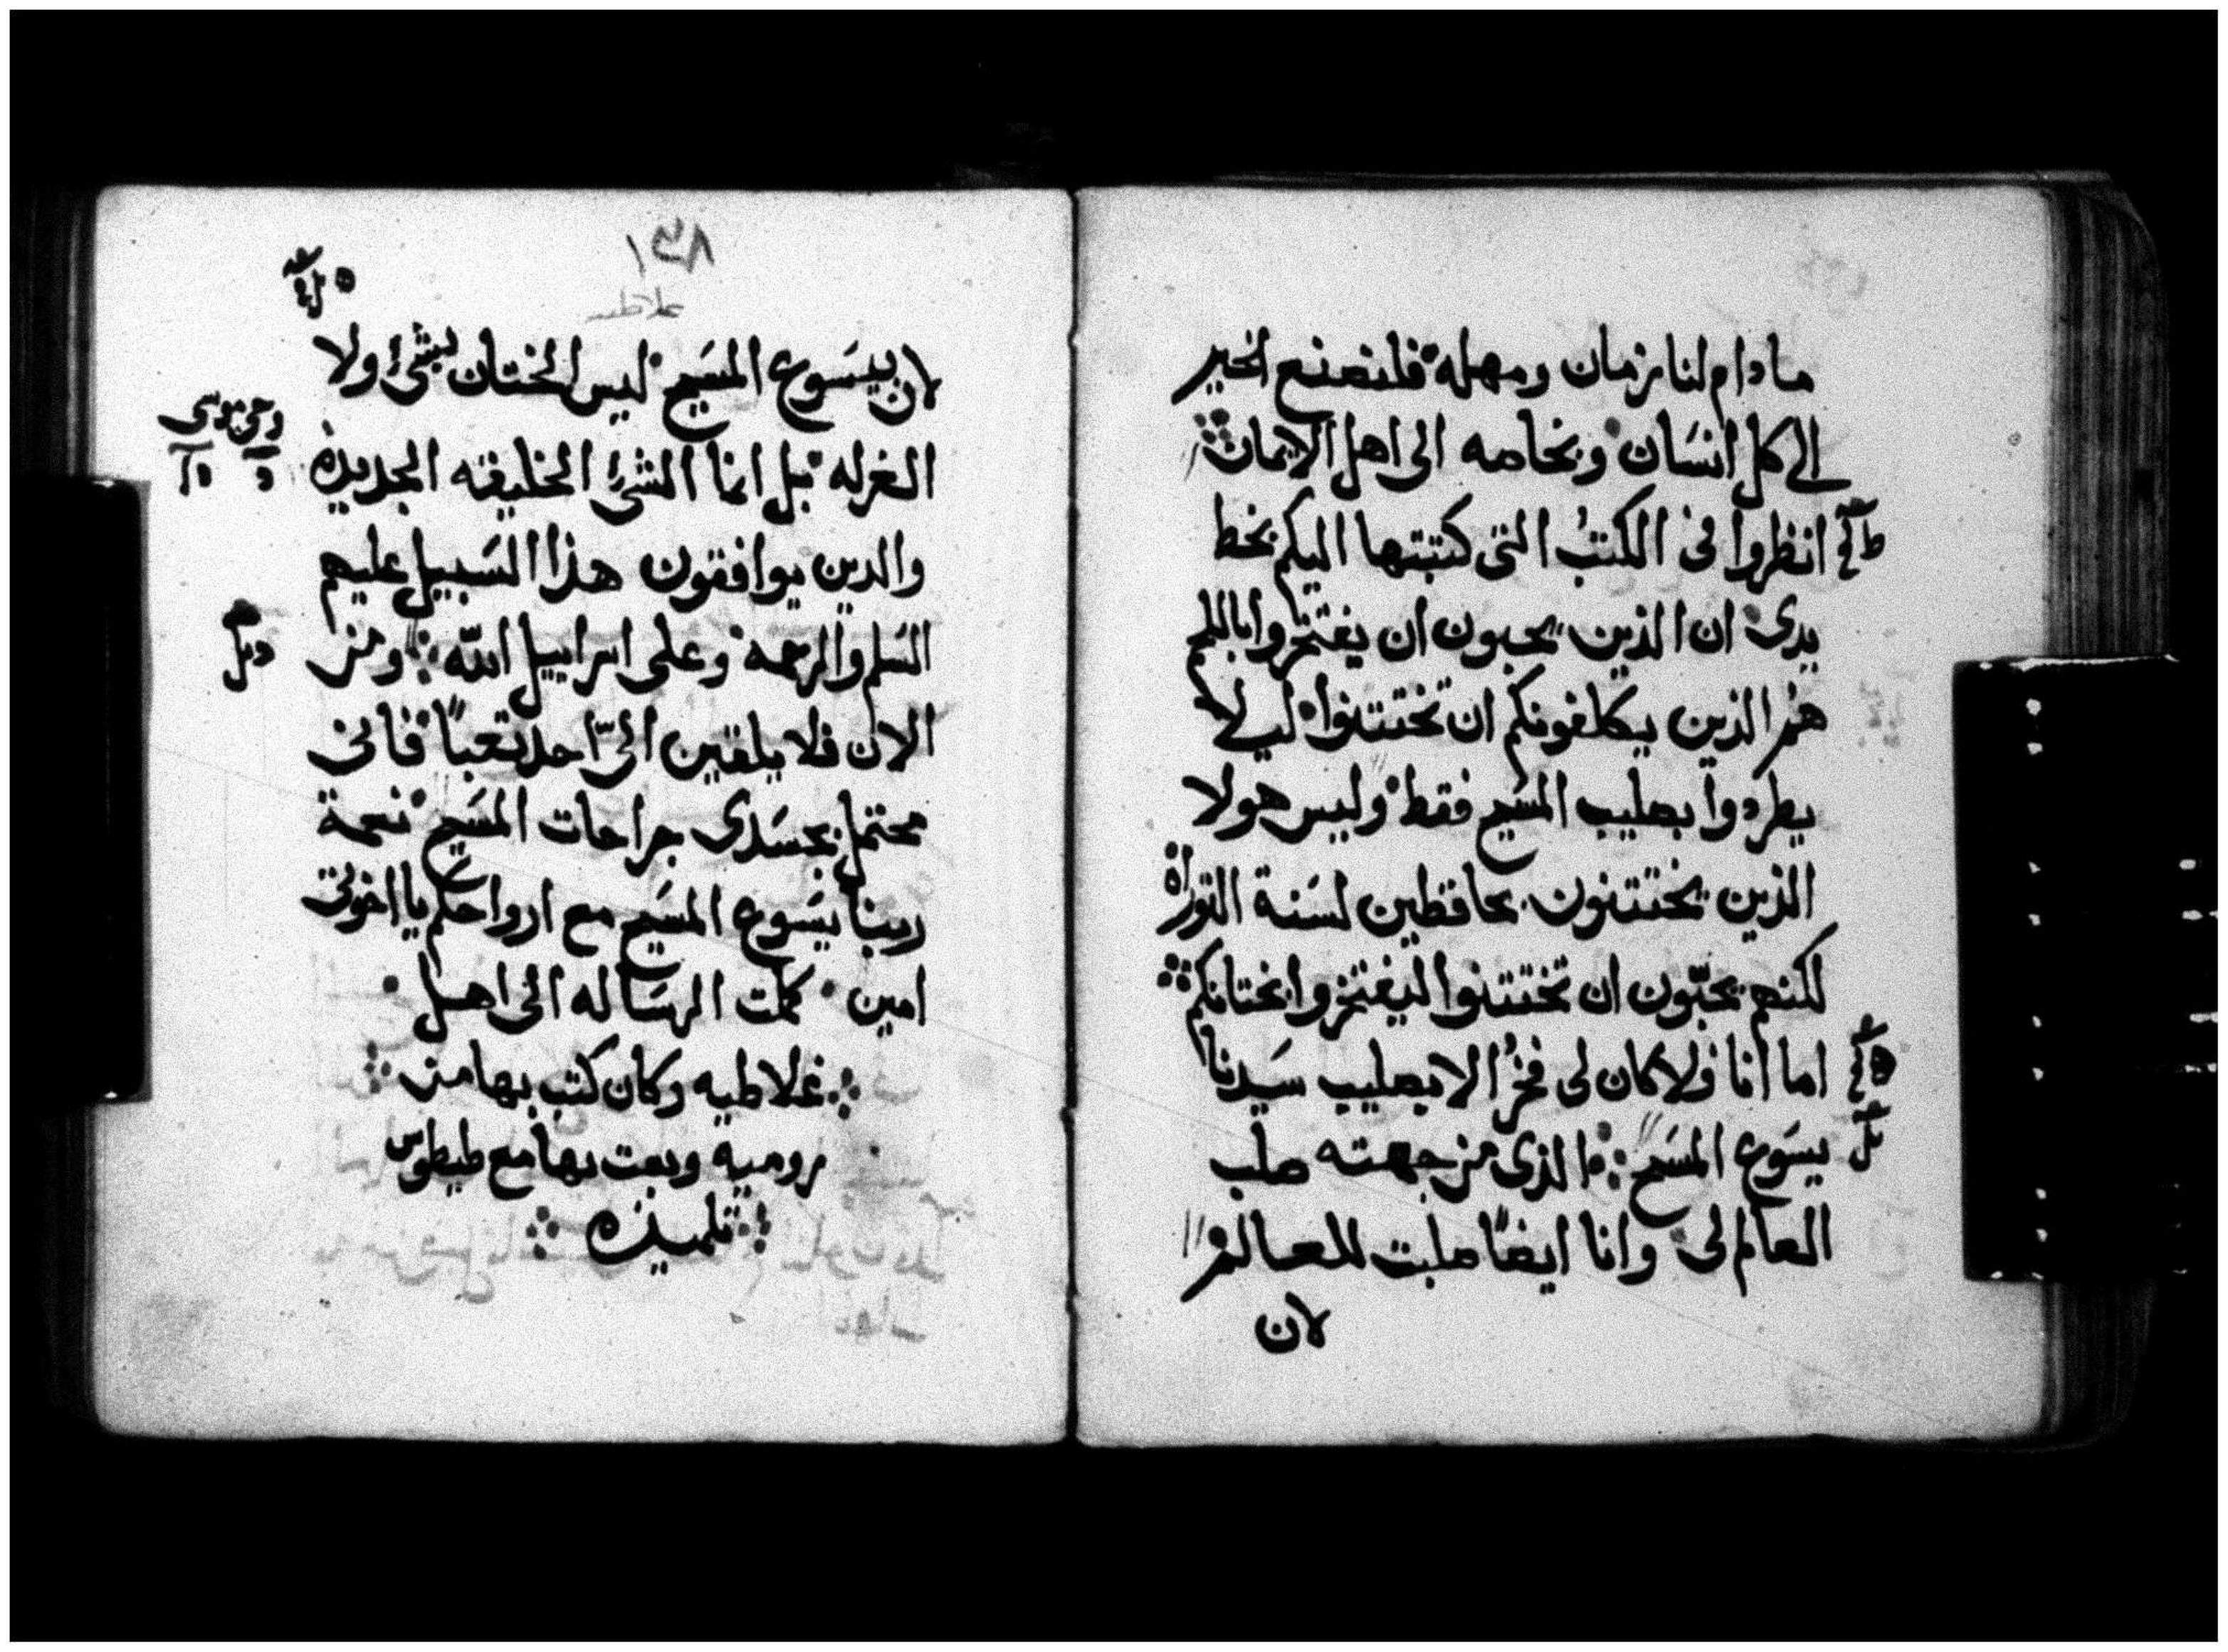 ما دام لنا زمان ومهله فلنصنع الخير
الى كل انسان وبخاصه الى اهل الايمان
انظروا فى الكتب التى كتبتها اليكم بخط
يدى ان الذين يحبون ان يفتخروا باللحم
هم الذين يكلفونكم ان تختتنوا ليلا
يطردوا بصليب المسيح فقط وليس هولا
الذين يختتنون بحافظين لسنة التوراة
لكنهم يحبّون ان تختتنوا ليفتخروا بختانكم
اما أنا فلا كان لى فخرُ الا بصليب سيدنا
يسوع المسيح الذى من جهته صلب
العالم لى وانا ايضًا صلبت للعالم
لان
لان بيسوع المسيح ليس الختان بشئ ولا
الغرله بل انما الشئ الخليقه الجديدة
والدين يوافقون هذا السبيل عليهم
السلم والرحمة وعلى اسراييل اللّه ومن
الان فلا يلقين الىّ احد تعبًا فانى
محتمل بجسدى جراحات المسيح نعمة
ربنا يسوع المسيح مع ارواحكم يا اخوتى
امين كملت الرساله الى اهل
غلاطيه وكان كتب بها من
رومية وبعت بها مع طيطوس
تلميذه